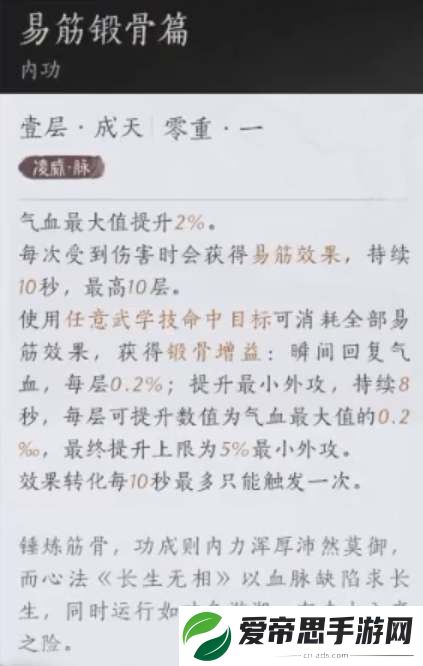 易筋锻骨篇
内功
壹层·成天 零重·一
凌威·脉
气血最大值提升2%。
每次受到伤害时会获得易筋效果，持续
10秒，最高10层。
使用任意武学技命中目标可消耗全部易
筋效果，获得锻骨增益：瞬间回复气
血，每层0.2%；提升最小外攻，持续8
秒，每层可提升数值为气血最大值的0.2
‰，最终提升上限为5%最小外攻。
效果转化每10秒最多只能触发一次。
锤炼筋骨，功成则内力浑厚沛然莫御，
而心法《长生无相》以血脉缺陷求长
生，同时运行如
之险。
爱帝思手游网
cn-ads.com